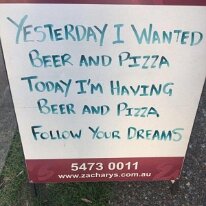 YESTERDAY I WANTED
BEER AND PIZZA
TODAY I'M HAVING
BEER AND PIZZA
FOLLOW YOUR DREAMS
5473 0011
www.zacharys.com.au